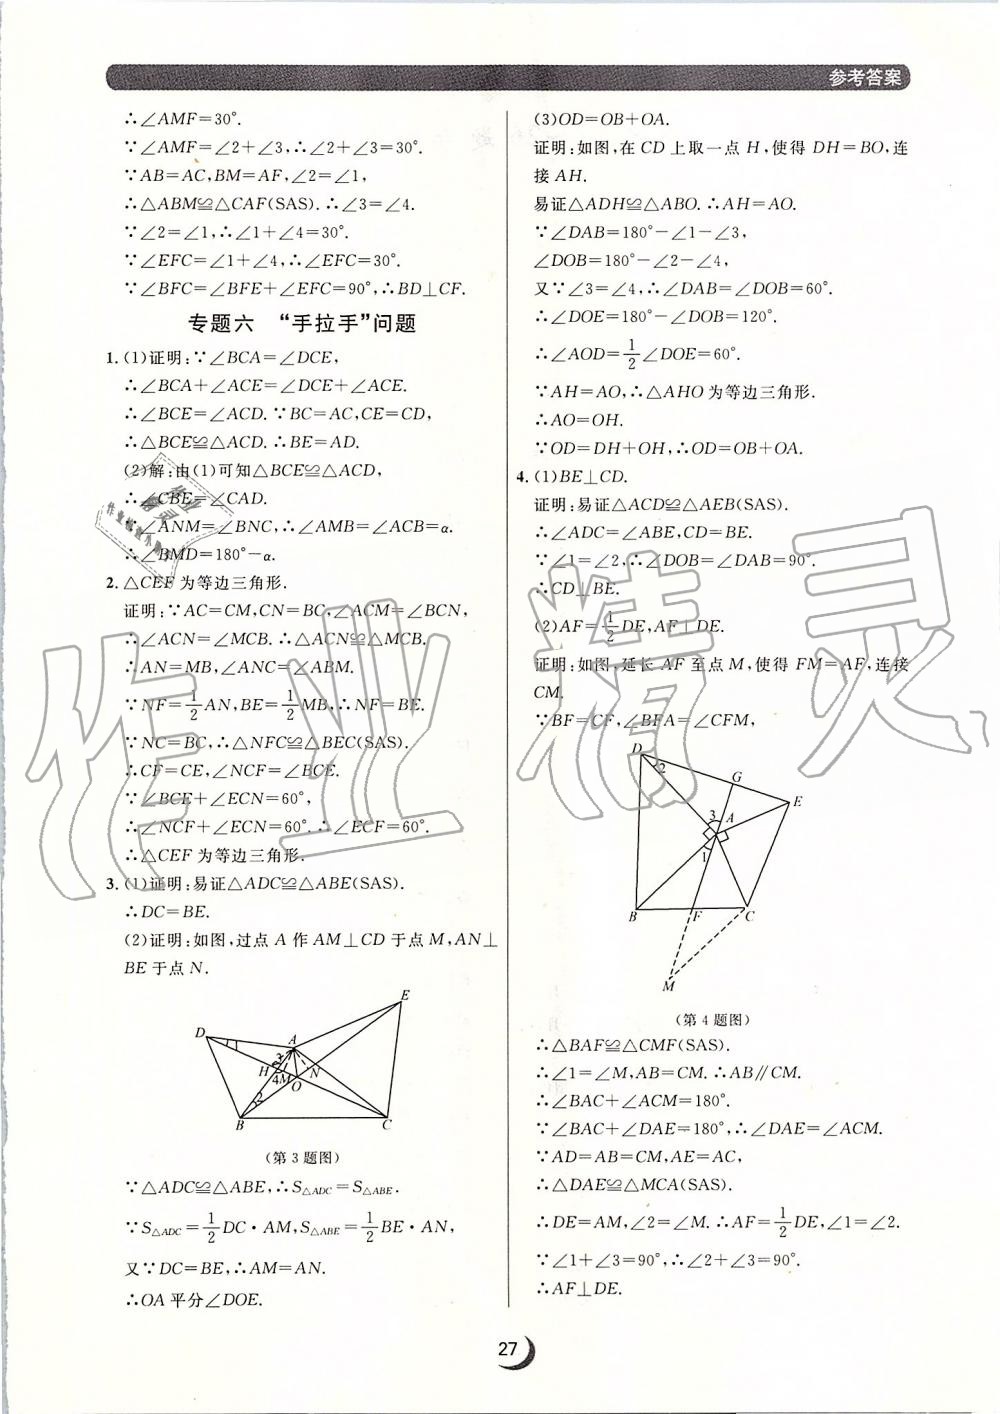 参考答案
∴∠AMF=30°.
∵∠AMF=∠2+∠3,∴∠2+∠3=30°.
∵AB=AC,BM=AF,∠2=∠1,
∴△ABM≌△CAF(SAS).∴∠3=∠4.
∵∠2=∠1,∴∠1+∠4=30°.
∵∠EFC=∠1+∠4,∴∠EFC=30°.
∵∠BFC=∠BFE+∠EFC=90°,∴BD⊥CF.
专题六 “手拉手”问题
1.(1)证明:∵∠BCA=∠DCE,
∴∠BCA+∠ACE=∠DCE+∠ACE.
∴∠BCE=∠ACD.∵BC=AC,CE=CD,
∴△BCE≌△ACD.∴BE=AD.
(2)解:由(1)可知△BCE≌△ACD,
∴∠CBE=∠CAD.
∵∠ANM=∠BNC,∴∠AMB=∠ACB=α.
∴∠BMD=180°-α.
2.△CEF为等边三角形.
证明:∵AC=CM,CN=BC,∠ACM=∠BCN,
∴∠ACN=∠MCB.∴△ACN≌△MCB.
∴AN=MB,∠ANC=∠ABM.
∵NF=1/2AN,BE=1/2MB,∴NF=BE.
∵NC=BC,∴△NFC≌△BEC(SAS).
∴CF=CE,∠NCF=∠BCE.
∵∠BCE+∠ECN=60°,
∴∠NCF+∠ECN=60°.∴∠ECF=60°.
∴△CEF为等边三角形.
3.(1)证明:易证△ADC≌△ABE(SAS).
∴DC=BE.
(2)证明:如图,过点A作AM⊥CD于点M,AN⊥
BE于点N.
D A E H 4 M O N 2 B C
(第3题图)
∵△ADC≌△ABE,∴S△ADC=S△ABE.
∵S△ADC=1/2DC·AM,S△ABE=1/2BE·AN,
又∵DC=BE,∴AM=AN.
∴OA平分∠DOE.
(3)OD=OB+OA.
证明:如图,在CD上取一点H,使得DH=BO,连
接AH.
易证△ADH≌△ABO.∴AH=AO.
∵∠DAB=180°-∠1-∠3,
∠DOB=180°-∠2-∠4,
又∵∠3=∠4,∴∠DAB=∠DOB=60°.
∴∠DOE=180°-∠DOB=120°.
∴∠AOD=1/2∠DOE=60°.
∵AH=AO,∴△AHO为等边三角形.
∴AO=OH.
∵OD=DH+OH,∴OD=OB+OA.
4.(1)BE⊥CD.
证明:易证△ACD≌△AEB(SAS).
∴∠ADC=∠ABE,CD=BE.
∵∠1=∠2,∴∠DOB=∠DAB=90°.
∴CD⊥BE.
(2)AF=1/2DE,AF⊥DE.
证明:如图,延长AF至点M,使得FM=AF,连接
CM.
∵BF=CF,∠BFA=∠CFM,
D 2 G E 3 A 1 B F C M
(第4题图)
∴△BAF≌△CMF(SAS).
∴∠1=∠M,AB=CM.∴AB∥CM.
∴∠BAC+∠ACM=180°.
∵∠BAC+∠DAE=180°,∴∠DAE=∠ACM.
∵AD=AB=CM,AE=AC,
∴△DAE≌△MCA(SAS).
∴DE=AM,∠2=∠M.∴AF=1/2DE,∠1=∠2.
∵∠1+∠3=90°,∴∠2+∠3=90°.
∴AF⊥DE.
27
作业精灵